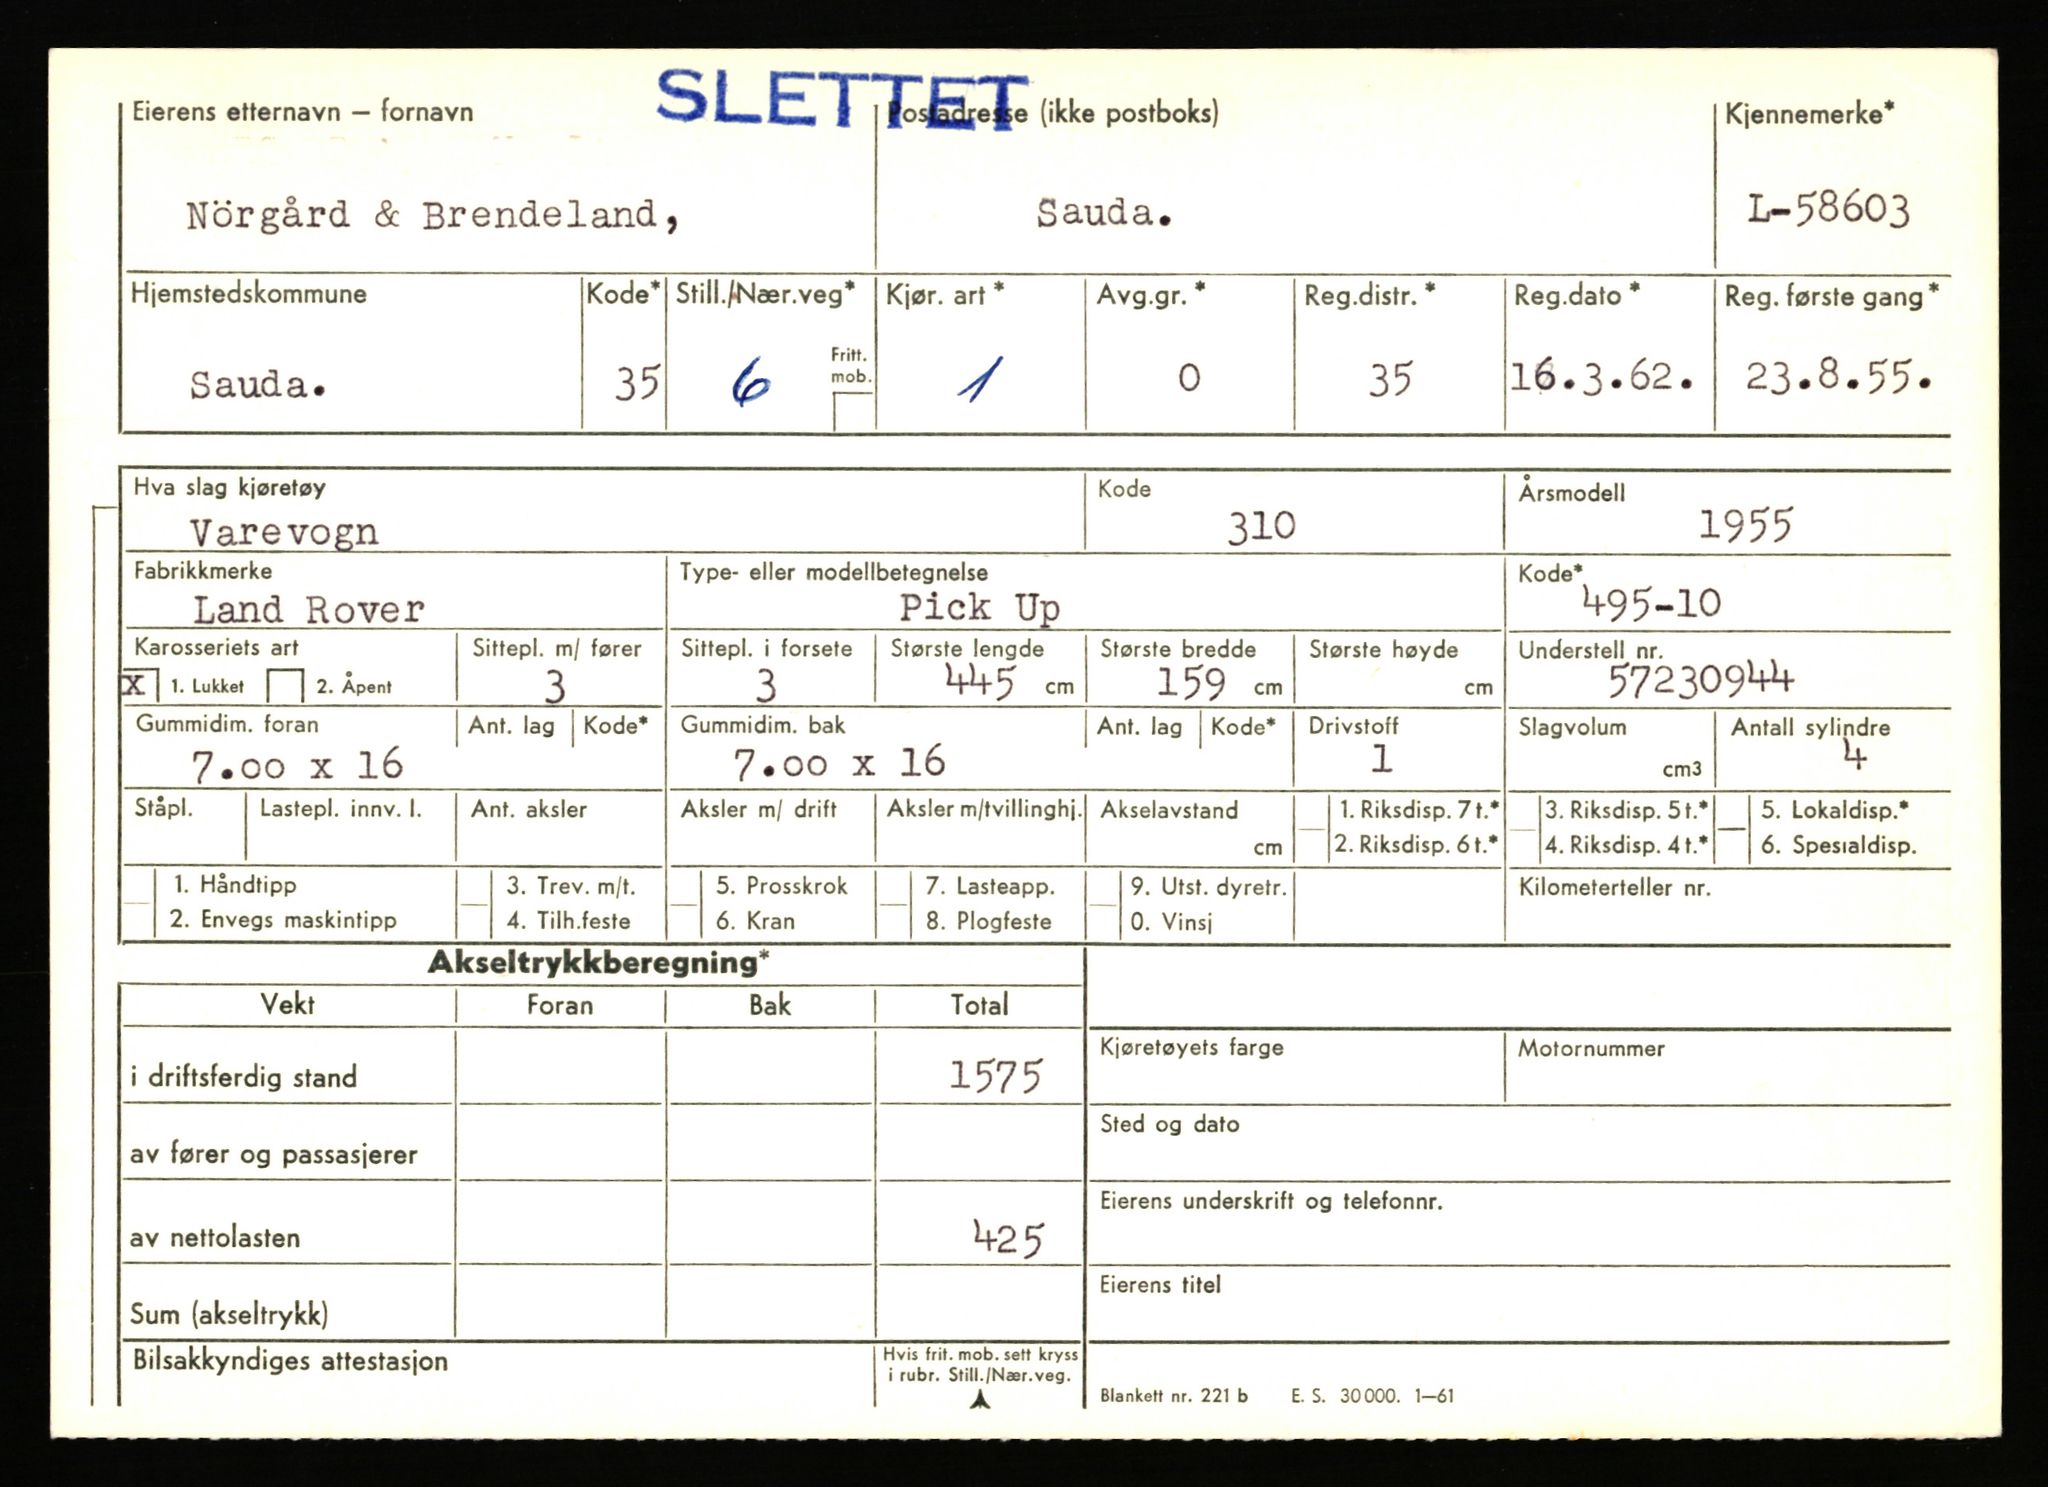 SLETTET
Eierens etternavn — fornavn Postadresse (ikke postboks) Kjennemerke*
Nörgård & Brendeland, Sauda. L-58603
Hjemstedskommune Kode* Still./Nær.veg* Kjør. art* Avg.gr.* Reg.distr.* Reg.dato* Reg. første gang*
Fritt. mob.
Sauda. 35 6 1 0 35 16.3.62. 23.8.55.
Hva slag kjøretøy Kode Årsmodell
Varevogn 310 1955
Fabrikkmerke Type- eller modellbetegnelse Kode*
Land Rover Pick Up 495-10
Karosseriets art Sittepl. m/ fører Sittepl. i forsete Største lengde Største bredde Største høyde Understell nr.
X 1. Lukket 2. Åpent 3 3 445 cm 159 cm cm 57230944
Gummidim. foran Ant. lag Kode* Gummidim. bak Ant. lag Kode* Drivstoff Slagvolum Antall sylindre
7.00 x 16 7.00 x 16 1 cm3 4
Ståpl. Lastepl. innv. l. Ant. aksler Aksler m/ drift Aksler m/tvillinghj. Akselavstand 1. Riksdisp. 7 t.* 3. Riksdisp. 5 t.* 5. Lokaldisp.*
cm 2. Riksdisp. 6 t.* 4. Riksdisp. 4 t.* 6. Spesialdisp.
1. Håndtipp 3. Trev. m/t. 5. Prosskrok 7. Lasteapp. 9. Utst. dyretr. Kilometerteller nr.
2. Envegs maskintipp 4. Tilh.feste 6. Kran 8. Plogfeste 0. Vinsj
Akseltrykkberegning*
Vekt Foran Bak Total
Kjøretøyets farge Motornummer
i driftsferdig stand 1575
Sted og dato
av fører og passasjerer
Eierens underskrift og telefonnr.
av nettolasten 425
Eierens titel
Sum (akseltrykk)
Bilsakkyndiges attestasjon Hvis frit. mob. sett kryss
i rubr. Still./Nær.veg.
Blankett nr. 221 b E. S. 30 000. 1—61